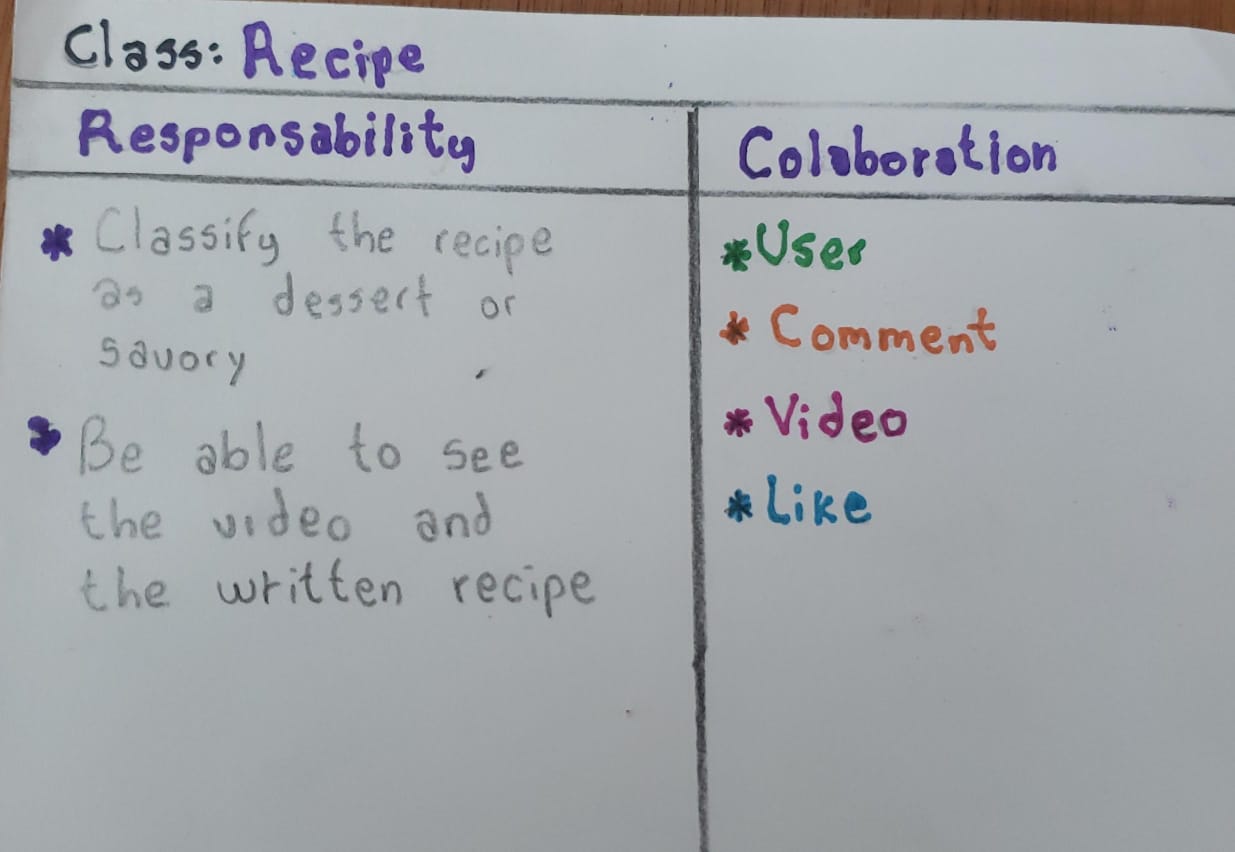 Class: Recipe
Responsability
Colaboration
* Classify the recipe
as a dessert or
savory
* Be able to see
the video and
the written recipe
* User
* Comment
* Video
* Like